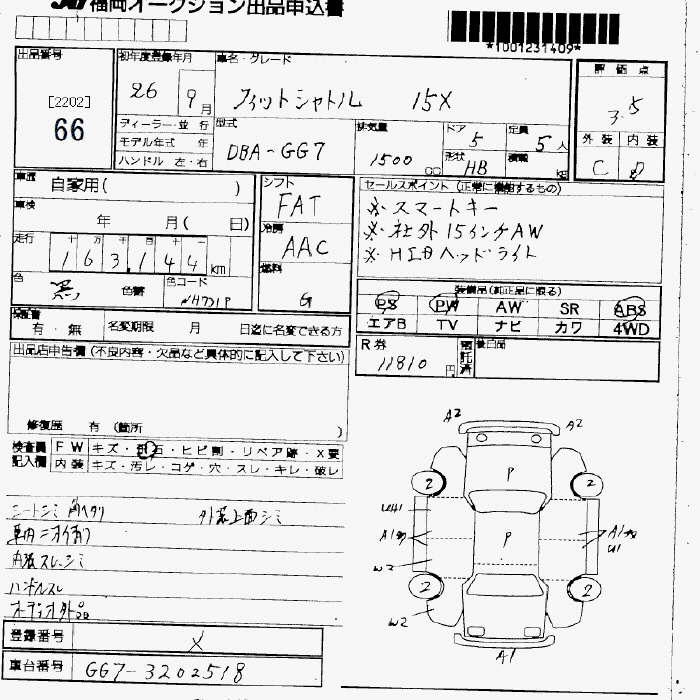 福岡オークション出品申込書
*1001231409*
出品番号
[2202]
66
初年度登録年月
26 9月
車名・グレード
フィットシャトル 15X
評価点
3.5
ディーラー・並行
モデル年式 年
ハンドル 左・右
型式
DBA-GG7
排気量
1500 cc
ドア
5
形状
HB
定員
5人
積載
kg
外装 内装
C D
車歴
自家用( )
車検
年 月( 日)
走行
十万千百十一
163,144 km
色
黒 色替
色コード
NH731P
シフト
FAT
冷房
AAC
燃料
G
セールスポイント (正常に機能するもの)
※スマートキー
※社外15インチAW
※HIDヘッドライト
装備品(純正品に限る)
PS PW AW SR ABS
エアB TV ナビ カワ 4WD
保証書
有・無
名変期限 月 日迄に名変できる方
R券
11810円
電託済
後日品
出品店申告欄(不良内容・欠品など具体的に記入して下さい)
修復歴 有 (箇所 )
検査員記入欄
FW キズ・飛石・ヒビ割・リペア跡・X要
内装 キズ・汚レ・コゲ・穴・スレ・キレ・破レ
シートシミ 角ヘタリ 外装上面シミ
車内ニオイ有り
内張スレ・シミ
ハンドルスレ
オーディオ外品
A2 A2
P
2 2
U41
A1
P
A1
U1
W2
2 2
W2
A1
登録番号 X
車台番号 GG7-3202518